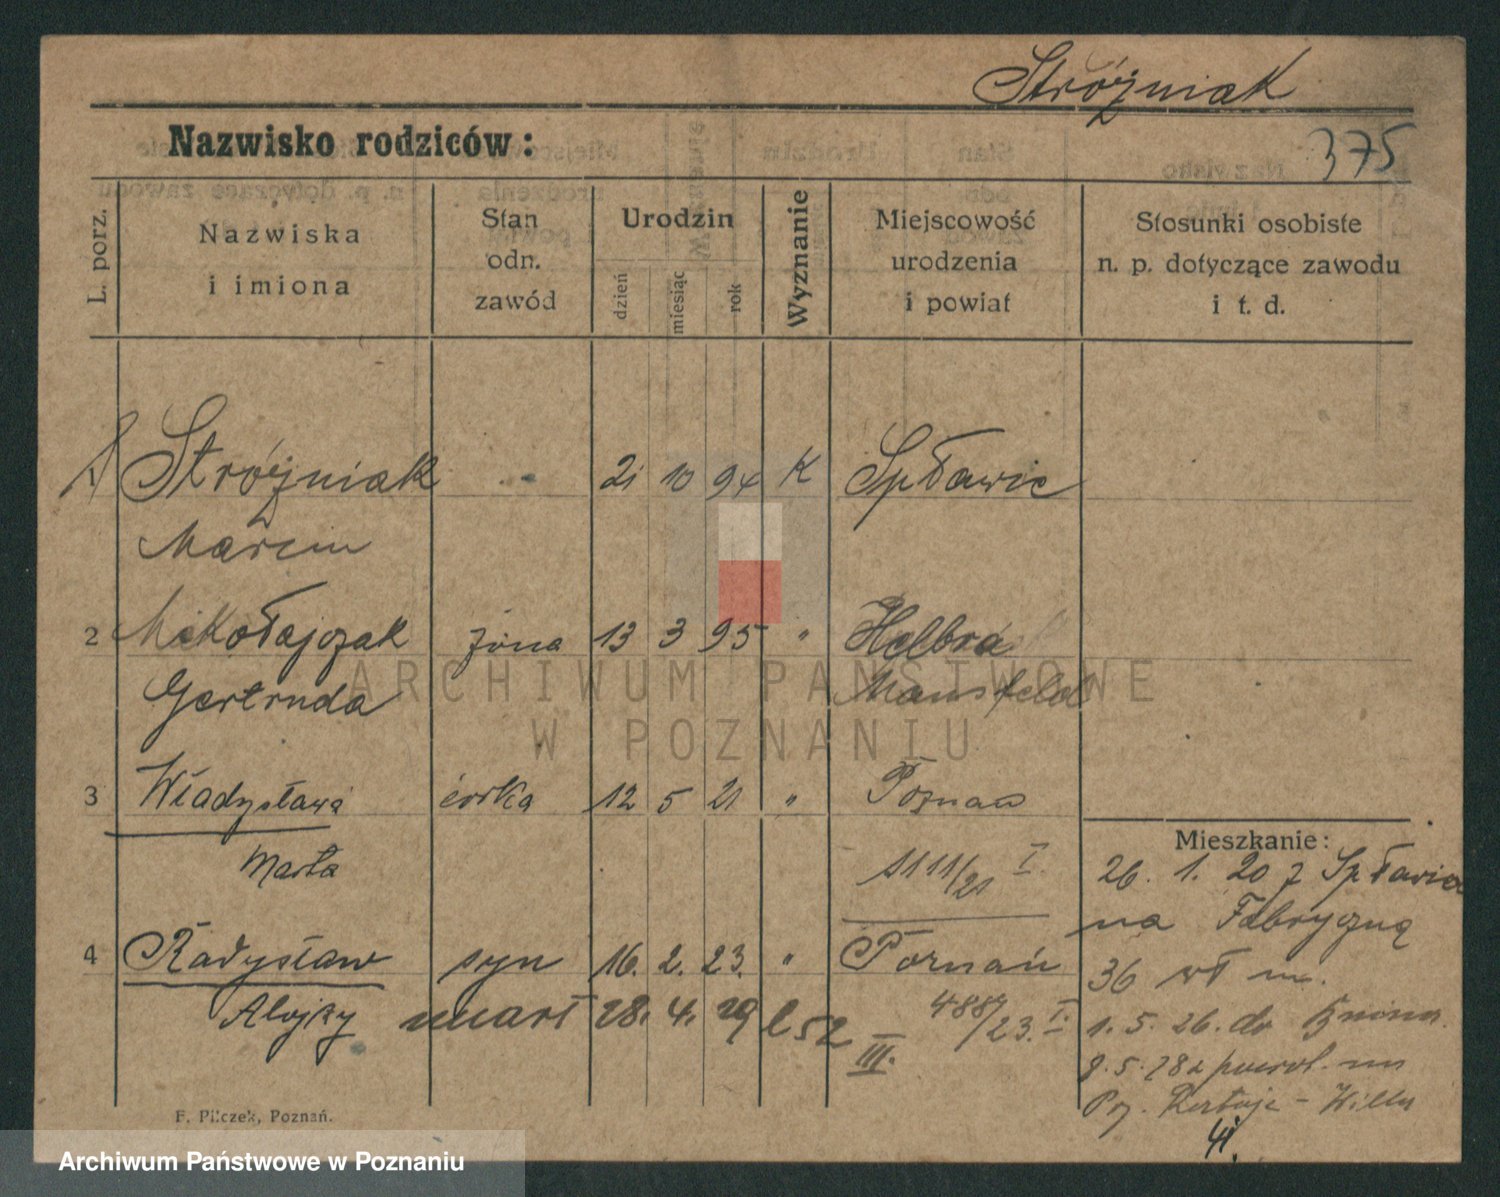 Stróżniak
Nazwisko rodziców:
375
L. porz.
Nazwiska
i imiona
Stan
odn.
zawód
Urodzin
dzień
miesiąc
rok
Wyznanie
Miejscowość
urodzenia
i powiat
Stosunki osobiste
n. p. dotyczące zawodu
i t. d.
1 Stróżniak 21 10 94 K Spławie
Marcin
2 Mikołajczak żona 13 3 95 " Helbra
Gertruda Mansfeld
3 Władysława córka 12 5 21 " Poznań
Marta 1111/21 I.
4 Władysław syn 16. 2. 23. " Poznań
Alojzy umarł 28. 4. 29 l 52 4887/23. I.
III.
Mieszkanie:
26. 1. 20 z Spławia
na Fabryczną
36 wł m.
1. 5. 26. do Knina.
9. 5. 28 z powrot. na
41.
F. Pilczek, Poznań.
ARCHIWUM PAŃSTWOWE
W POZNANIU
Archiwum Państwowe w Poznaniu